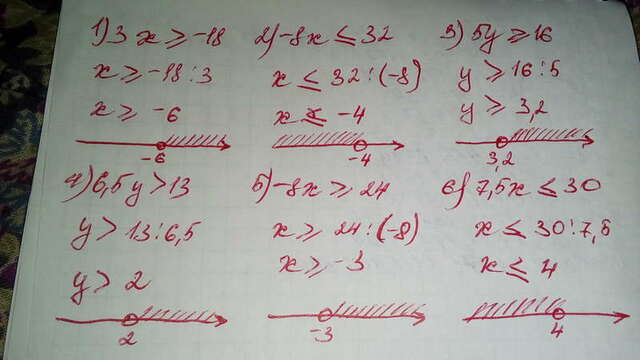 1) 3x ≥ -18
x ≥ -18:3
x ≥ -6
-6
2) -8x ≤ 32
x ≤ 32:(-8)
x ≤ -4
-4
3) 5y ≥ 16
y ≥ 16:5
y ≥ 3,2
3,2
4) 6,5y > 13
y > 13:6,5
y > 2
2
5) -8x ≥ 24
x ≥ 24:(-8)
x ≥ -3
-3
6) 7,5x ≤ 30
x ≤ 30:7,5
x ≤ 4
4